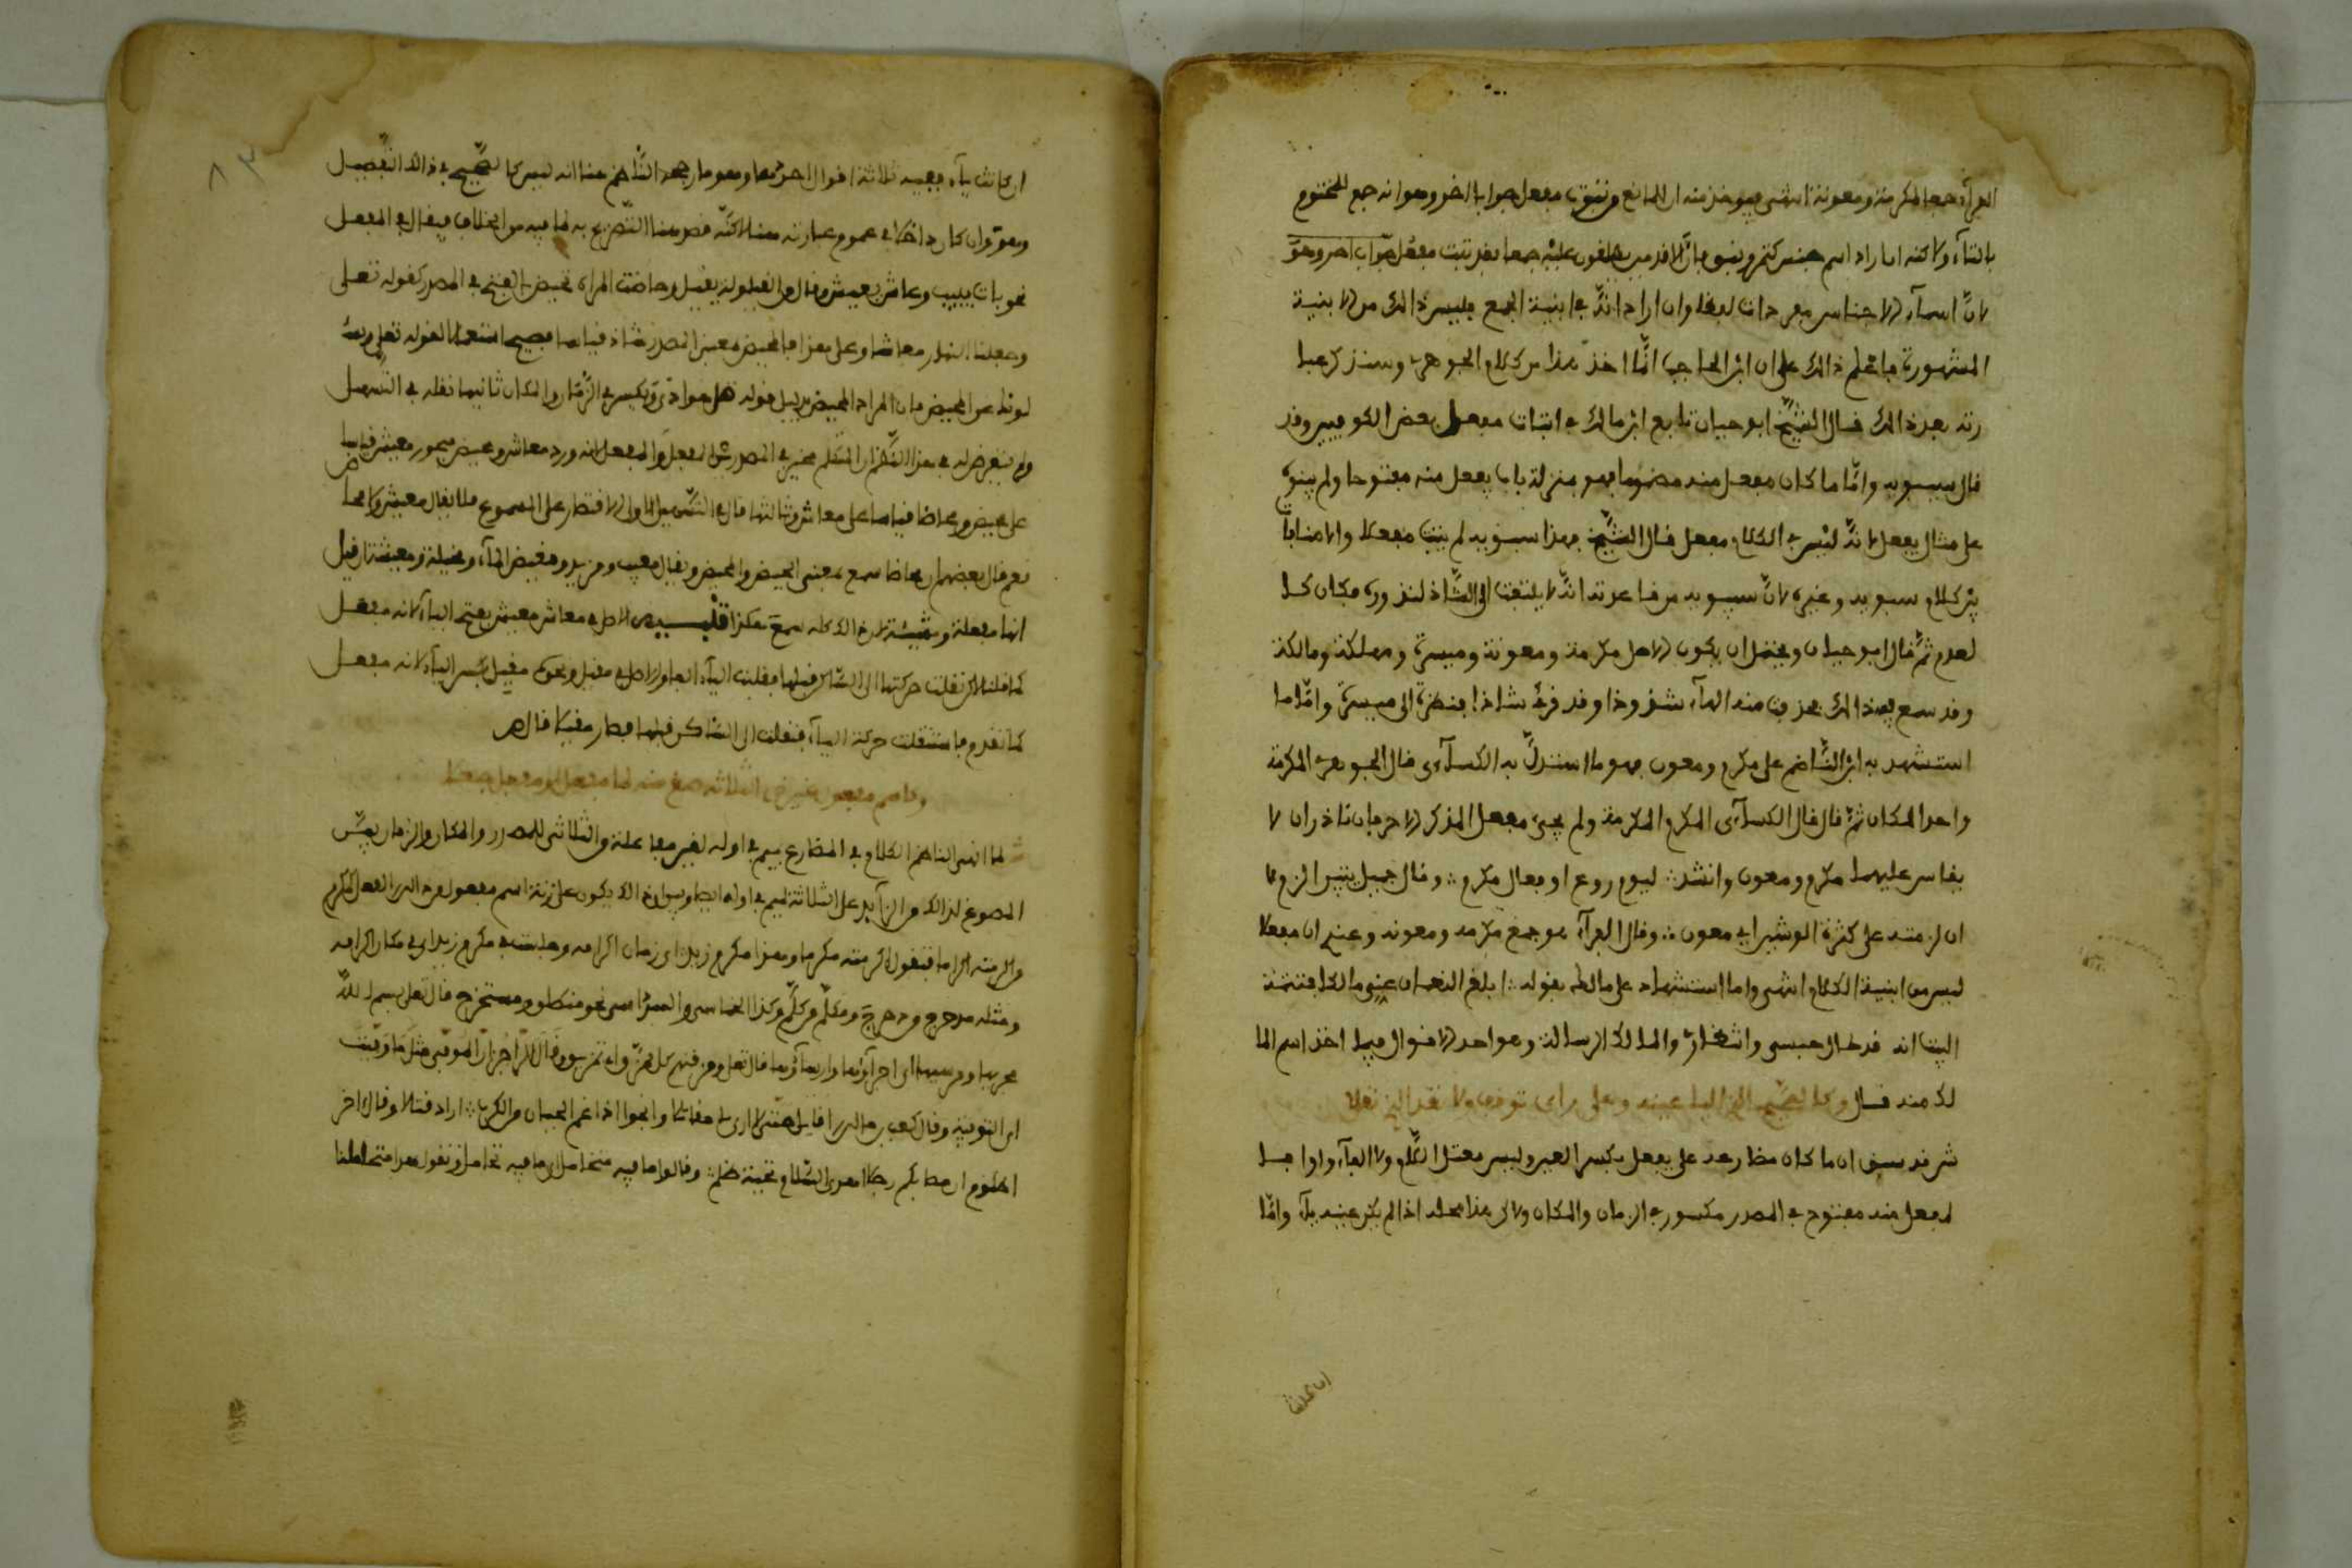 الفرآء جمعا لمكرمة ومعونة انتهى فيوخذ منه ان المانع وثبوت مفعل جوابا اخر وهو انه جمع للمختوم
بالتآء ولاكنه ان اراد اسم جنس كتمر ونبق فانّ الاقدمين يطلقون عليه جمعا فقد ثبت مفعل جوابا اخر وهو
لانّ اسمآء الاجناس مفردات لفظا وان اراد انّه في ابنية الجمع فليس ذالك من الابنية
المشهورة فاعلم ذالك على ان ابن الحاجب انّما اخذ هذا من كلام الجوهري وسنذكر عبا
رته بعد ذالك قال الشيخ ابو حيان تابع ابن مالك في اثبات مفعل بعض الكوفيين وقد
قال سيبويه وامّا ما كان يفعل منه مضموما فهو بمنزلة ما يفعل منه مفتوحا ولم يبنوه
على مثال يفعل لانّه ليس في الكلام مفعل قال الشيخ فهذا سيبويه لم يثبت مفعلا
كلام سيبويه وغيره لانّ سيبويه من قاعدته انّه لا يلتفت الى الشّاذ لنذوره فكان كا
لعدم ثمّ قال ابو حيان ويحتمل ان يكون الاصل مكرمة ومعونة وميسرة ومهلكة ومالكة
وقد سمع فيها ذالك فحذف منه الهآء شذوذا وقد قرئ شاذا فنظرة الى ميسرة وامّا ما
استشهد به ابن النّاظم على مكرم ومعون فهو ما استدلّ به الكسآءى قال الجوهرى المكرمة
واحد المكارم ثمّ قال قال الكسآءى المكرم المكرمة ولم يجئ مفعل للمذكر الا حرفان نادران لا
يقاس عليهما مكرم ومعون وانشد ليوم روع او فعال مكرم وقال جميل بثين الزمى لا
ان لزمته على كثرة الواشين اي معون وقال الفرآء هو جمع مكرمة ومعونة وعنده ان مفعلا
ليس من ابنية الكلام انتهى واما استشهاده على مالك بقوله ابلغ النعمان عني مالكا فتتمة
البيت انه قد طال حبسي وانتظاري والمالك الرسالة وهو احد الاقوال فيما اخذ اسم الملا
ئكة منه قال وكالصحيح الذي اليا عينه وعلى راى توقف ولا تعد الذي نقلا
ش قد سبق ان ما كان مضارعه على يفعل بكسر العين وليس معتل اللام ولا الفآء واوا فـ
المفعل منه مفتوح في المصدر مكسور في الزمان والمكان ولاكن هذا محله اذا لم يكن عينه يآء وامّا
ان كانت
ان كانت يآء ففيه ثلاثة اقوال احدها وهو ما رجحه النّاظم هنا انه ليس كالصّحيح في ذالك التّفصيل
وهو وان كان داخلا في عموم عبارته هنالك لاكنّه قصد هنا التّصريح به لما فيه من الخلاف فيقال في المفعل
نحو بات يبيت وعاش يعيش وقال من القيلولة يقيل وحاضت المراة تحيض بالفتح في المصدر كقوله تعلى
وجعلنا النهار معاشا وعلى هذا فالمحيض بمعنى المصدر شاذ قياسا فصيح استعمالا لقوله تعلى ويسئلـ
لونك عن المحيض فان المراد الحيض بدليل قوله قل هو اذى ويكسر في الزّمان والمكان ثانيها نقله في التسهيل
ولم يتعرض له في هذا النظم ان المتكلم مخير في المصدر بين المفعل والمفعل لانه ورد معاش ومحيض فيجوز معيش قياسا
على محيض ومحاضا قياسا على معاش وثالثها قال في التسهيل الاولى الاقتصار على المسموع فلا يقال معيش ولا محا
نعم قال بعضهم ان محاضا سمع بمعنى الحيض والمحيض ويقال مغيب ومزيد ومغيض المآء ومخيلة ومعيشة ان قيل
انها مفعلة ومشيئة لان ذالك كله سمع هكذا تنبيـــــه الاصل في معاش معيش بفتح اليآء لانه مفعل
كما قلنا لاكن نقلت حركتها الى السّاكن قبلها فقلبت اليآء الفا والاصل في مقيل ونحوه مقيل بكسر اليآء لانه مفعل
كما تقدم فاستثقلت حركة اليآء فنقلت الى السّاكن قبلها فصار مقيلا قال ص
وكاسم مفعول غير ذى الثلاثة صغ منه لما مفعل او مفعل جعلا
ش لما انهى الناظم الكلام في المصوغ بميم في اوله لغير مفاعلة من الثلاثى للمصدر والمكان والزمان بيّن
المصوغ لذالك من الزآئد على الثلاثة بميم في اوله ايضا وبين ان ذالك يكون على زنة اسم مفعول من ذالك الفعل كمكرم
من اكرمته اكراما فتقول اكرمته مكرما وهذا مكرم زيد اى زمان اكرامه وجلست في مكرم زيد اى في مكان اكرامه
ومثله مدحرج من دحرج ومكلّم من كلّم وكذا الخماسى والسداسى نحو منطلق ومستخرج قال تعلى بسم اللّه
مجراها ومرساها اى اجرآؤها وارسآؤها قال تعلى ومزقناهم كل ممزّق اى تمزيق وقال الرّاجز ان الموقّى مثل ما وقيت
اى التوقية وقال كعب بن مالك اقاتل حتّى لا ارى لى مقاتلا وانجوا اذا غم الجبان من الكرب اراد قتالا وقال اخر
اظلوم ان مصابكم رجلا اهدى السّلام تحية ظلم وقالوا ما فيه متحامل اى ما فيه تحامل وتقول هذا متحاملنا